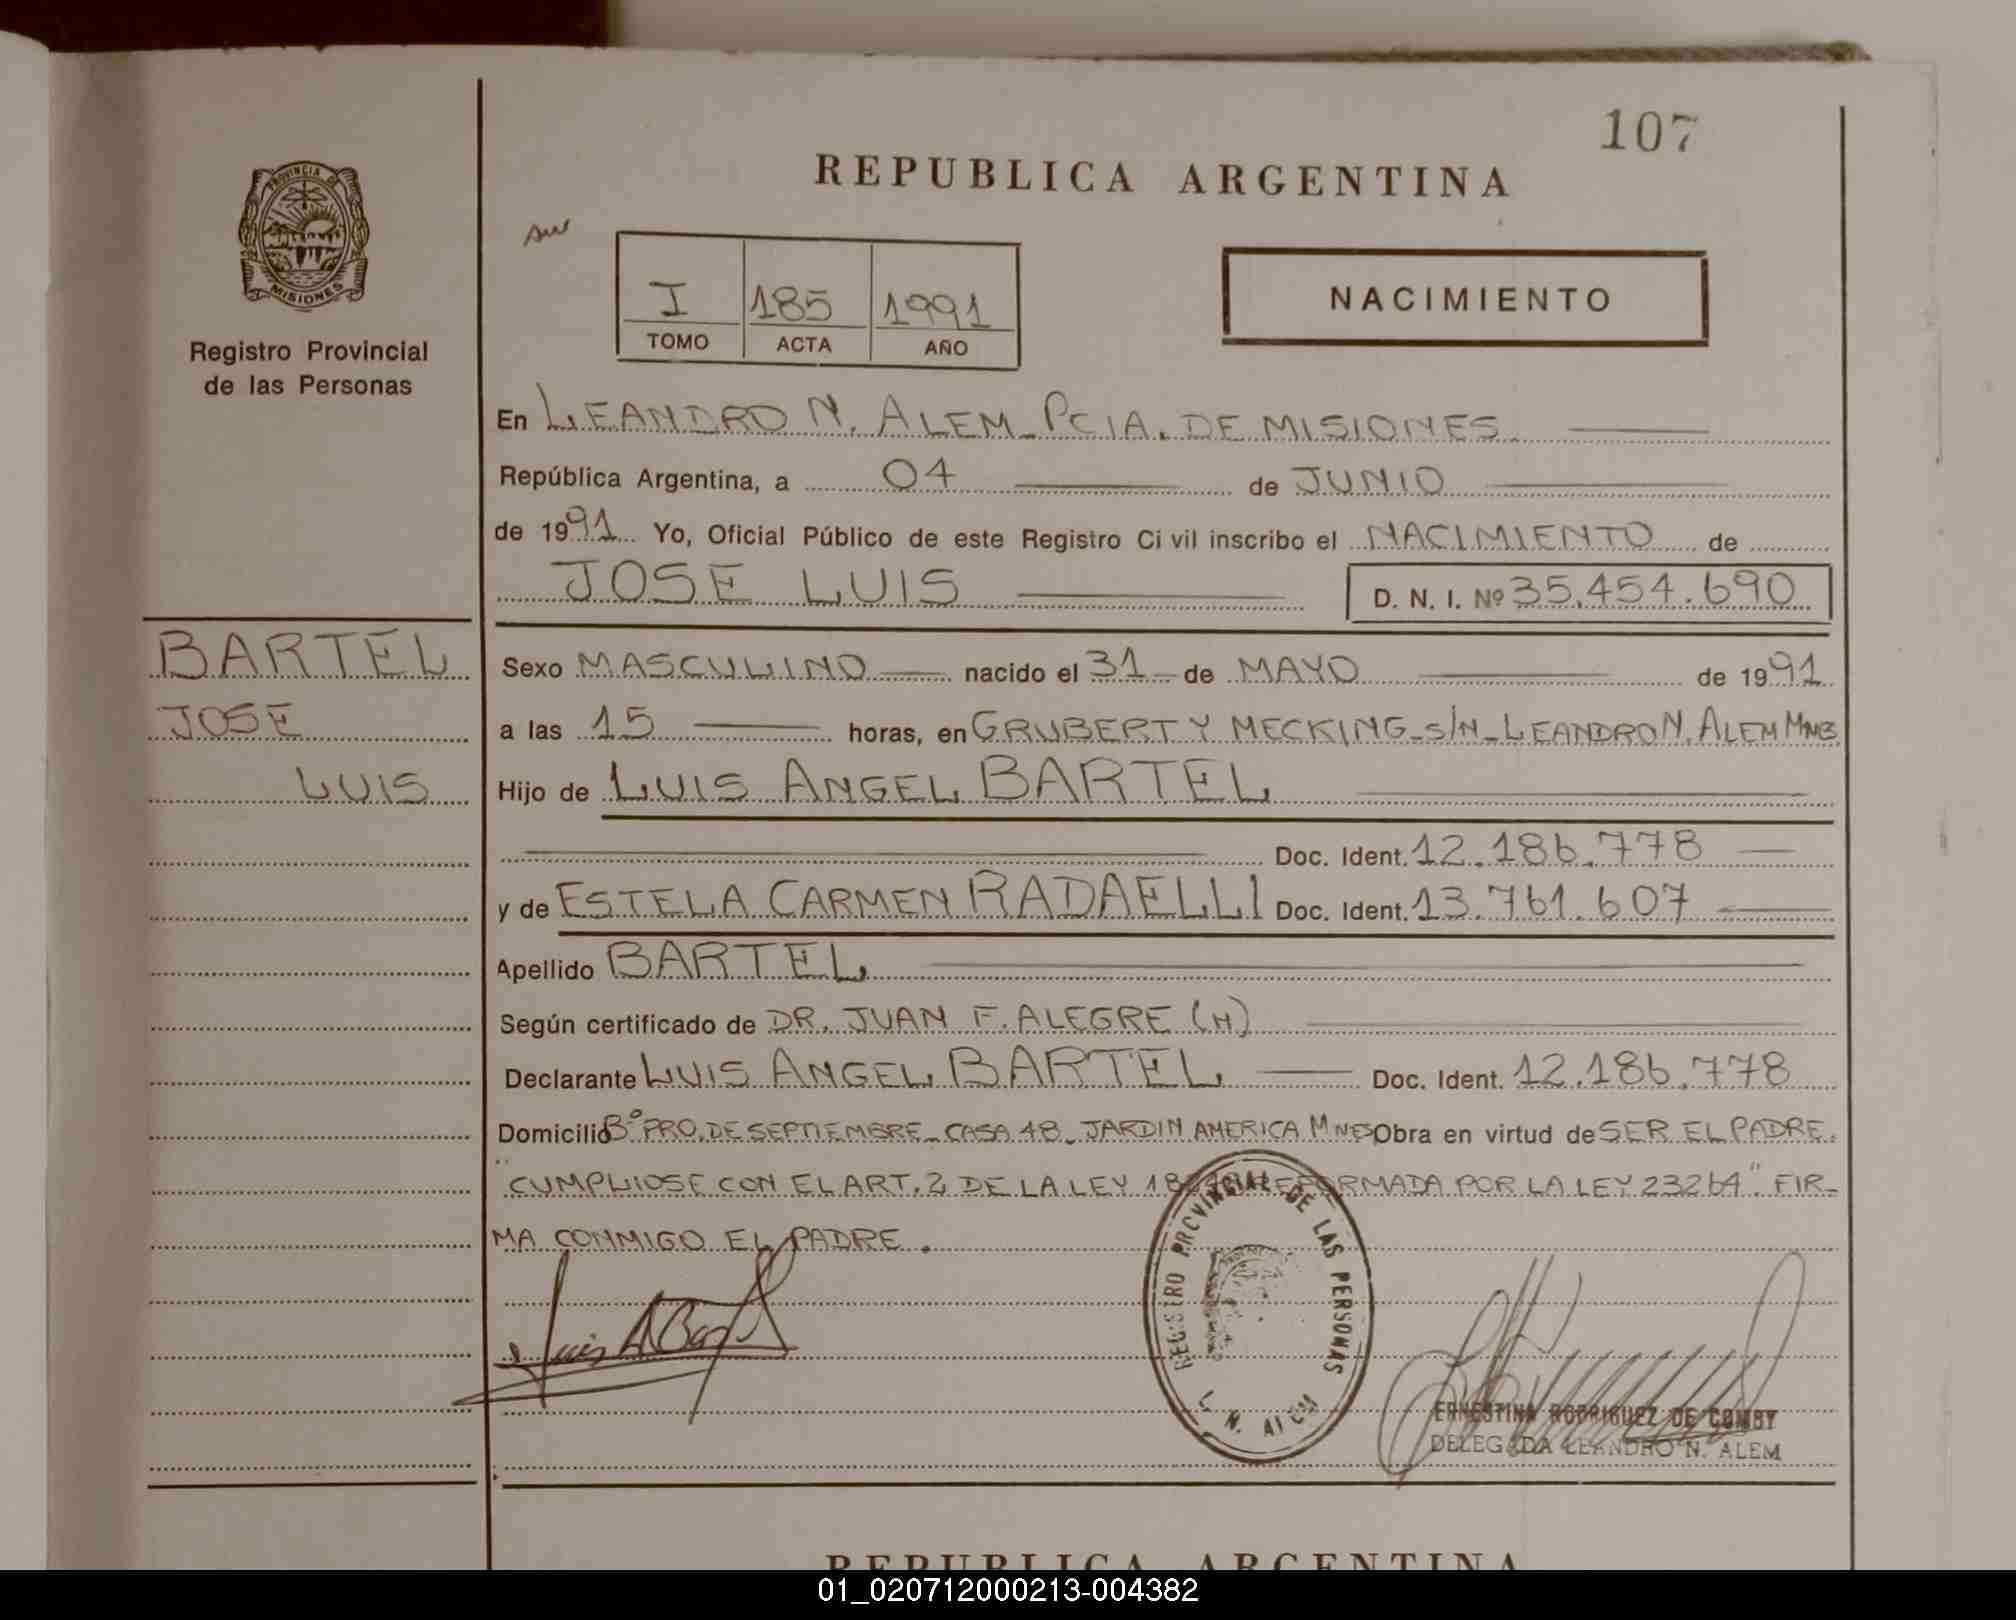 107
REPUBLICA ARGENTINA
PROVINCIA DE
MISIONES
Registro Provincial
de las Personas
I 185 1991
TOMO ACTA AÑO
NACIMIENTO
En LEANDRO N. ALEM - PCIA. DE MISIONES
República Argentina, a 04 de JUNIO
de 1991 Yo, Oficial Público de este Registro Civil inscribo el NACIMIENTO de
JOSE LUIS D. N. I. Nº 35.454.690
BARTEL
JOSE
LUIS
Sexo MASCULINO nacido el 31 de MAYO de 1991
a las 15 horas, en GRUBERT Y MECKING - S/N - LEANDRO N. ALEM MNES
Hijo de LUIS ANGEL BARTEL
Doc. Ident. 12.186.778
y de ESTELA CARMEN RADAELLI Doc. Ident. 13.761.607
Apellido BARTEL
Según certificado de DR. JUAN F. ALEGRE (H)
Declarante LUIS ANGEL BARTEL Doc. Ident. 12.186.778
Domicilio Bº PRO. DE SEPTIEMBRE - CASA 48 - JARDIN AMERICA MNES Obra en virtud de SER EL PADRE.
"CUMPLIOSE CON EL ART. 2 DE LA LEY REFORMADA POR LA LEY 23264". FIR-
MA CONMIGO EL PADRE.
Luis A Bartel
REGISTRO PROVINCIAL DE LAS PERSONAS
L. N. ALEM
ERNESTINA RODRIGUEZ DE COMBY
DELEGADA LEANDRO N. ALEM
REPUBLICA ARGENTINA
01_020712000213-004382